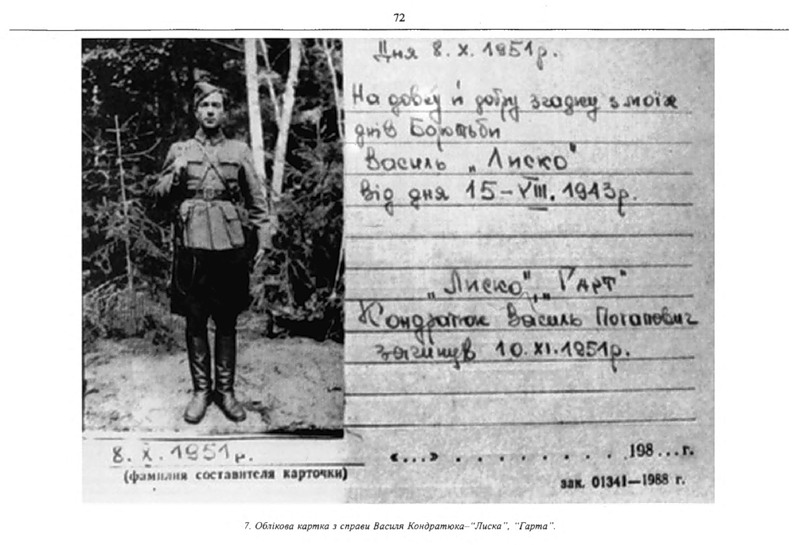 72
Дня 8. X. 1951 р.
На довгу й добру згадку з моїх
днів Боротьби
Василь „Лиско"
від дня 15-VIII. 1943 р.
„Лиско", „Гарт"
Кондратюк Василь Потапович
загинув 10. XI. 1951 р.
8. X. 1951 р.
(фамилия составителя карточки)
«...» . . . . . . . . 198...г.
зак. 01341—1988 г.
7. Облікова картка з справи Василя Кондратюка–“Лиска”, “Гарта”.